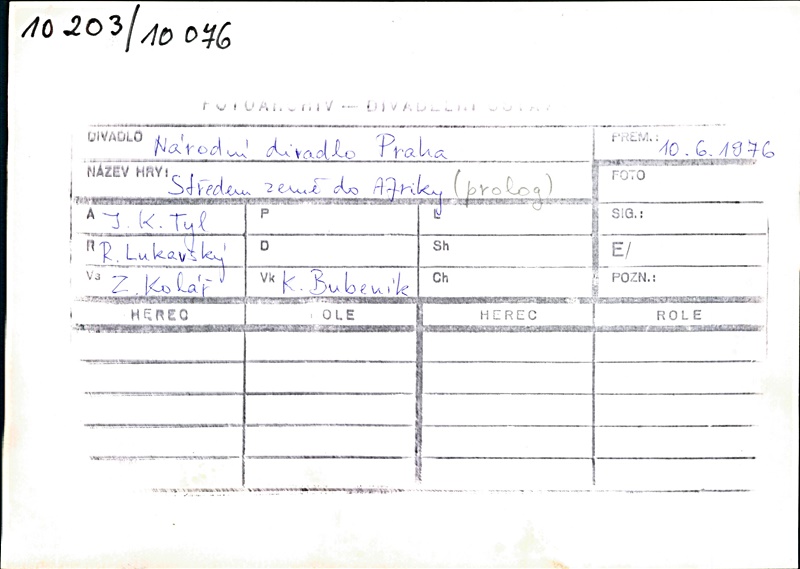 10 203/10 076
FOTOARCHIV — DIVADELNÍ
DIVADLO Národní divadlo Praha PREM.: 10. 6. 1976
NÁZEV HRY: Středem země do Afriky (prolog) FOTO
A J. K. Tyl P SIG.:
R R. Lukavský D Sh E/
Vs Z. Kolář Vk K. Bubeník Ch POZN.:
HEREC OLE HEREC ROLE